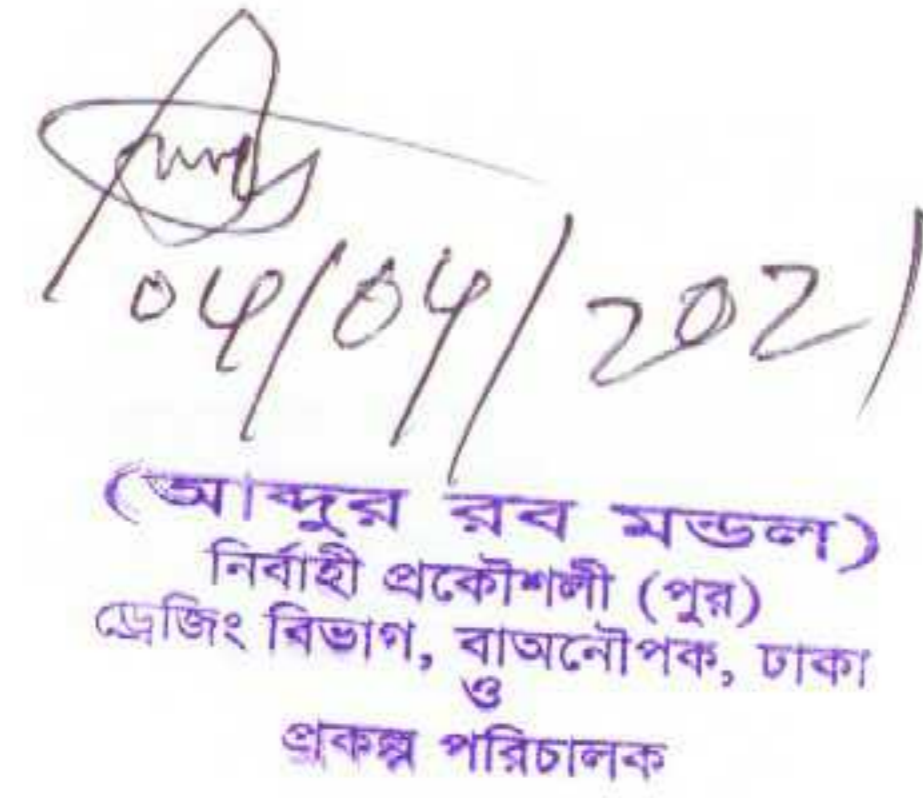 04/04/2021
(আব্দুর রব মন্ডল)
নির্বাহী প্রকৌশলী (পুর)
ড্রেজিং বিভাগ, বাঅনৌপক, ঢাকা
ও
প্রকল্প পরিচালক